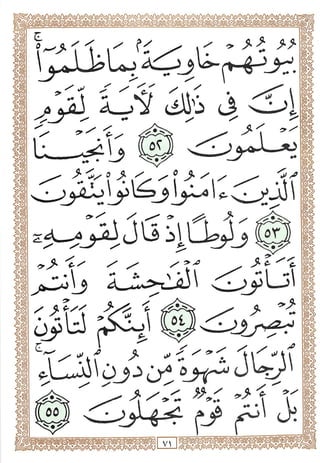 بُيُوتُهُمْ خَاوِيَةً بِمَا ظَلَمُوٓا۟ ۗ
إِنَّ فِى ذَٰلِكَ لَـَٔايَةً لِّقَوْمٍ
يَعْلَمُونَ ۝٥٢ وَأَنجَيْنَا
ٱلَّذِينَ ءَامَنُوا۟ وَكَانُوا۟ يَتَّقُونَ
۝٥٣ وَلُوطًا إِذْ قَالَ لِقَوْمِهِۦٓ
أَتَأْتُونَ ٱلْفَٰحِشَةَ وَأَنتُمْ
تُبْصِرُونَ ۝٥٤ أَئِنَّكُمْ لَتَأْتُونَ
ٱلرِّجَالَ شَهْوَةً مِّن دُونِ ٱلنِّسَآءِ ۚ
بَلْ أَنتُمْ قَوْمٌ تَجْهَلُونَ ۝٥٥
٧١